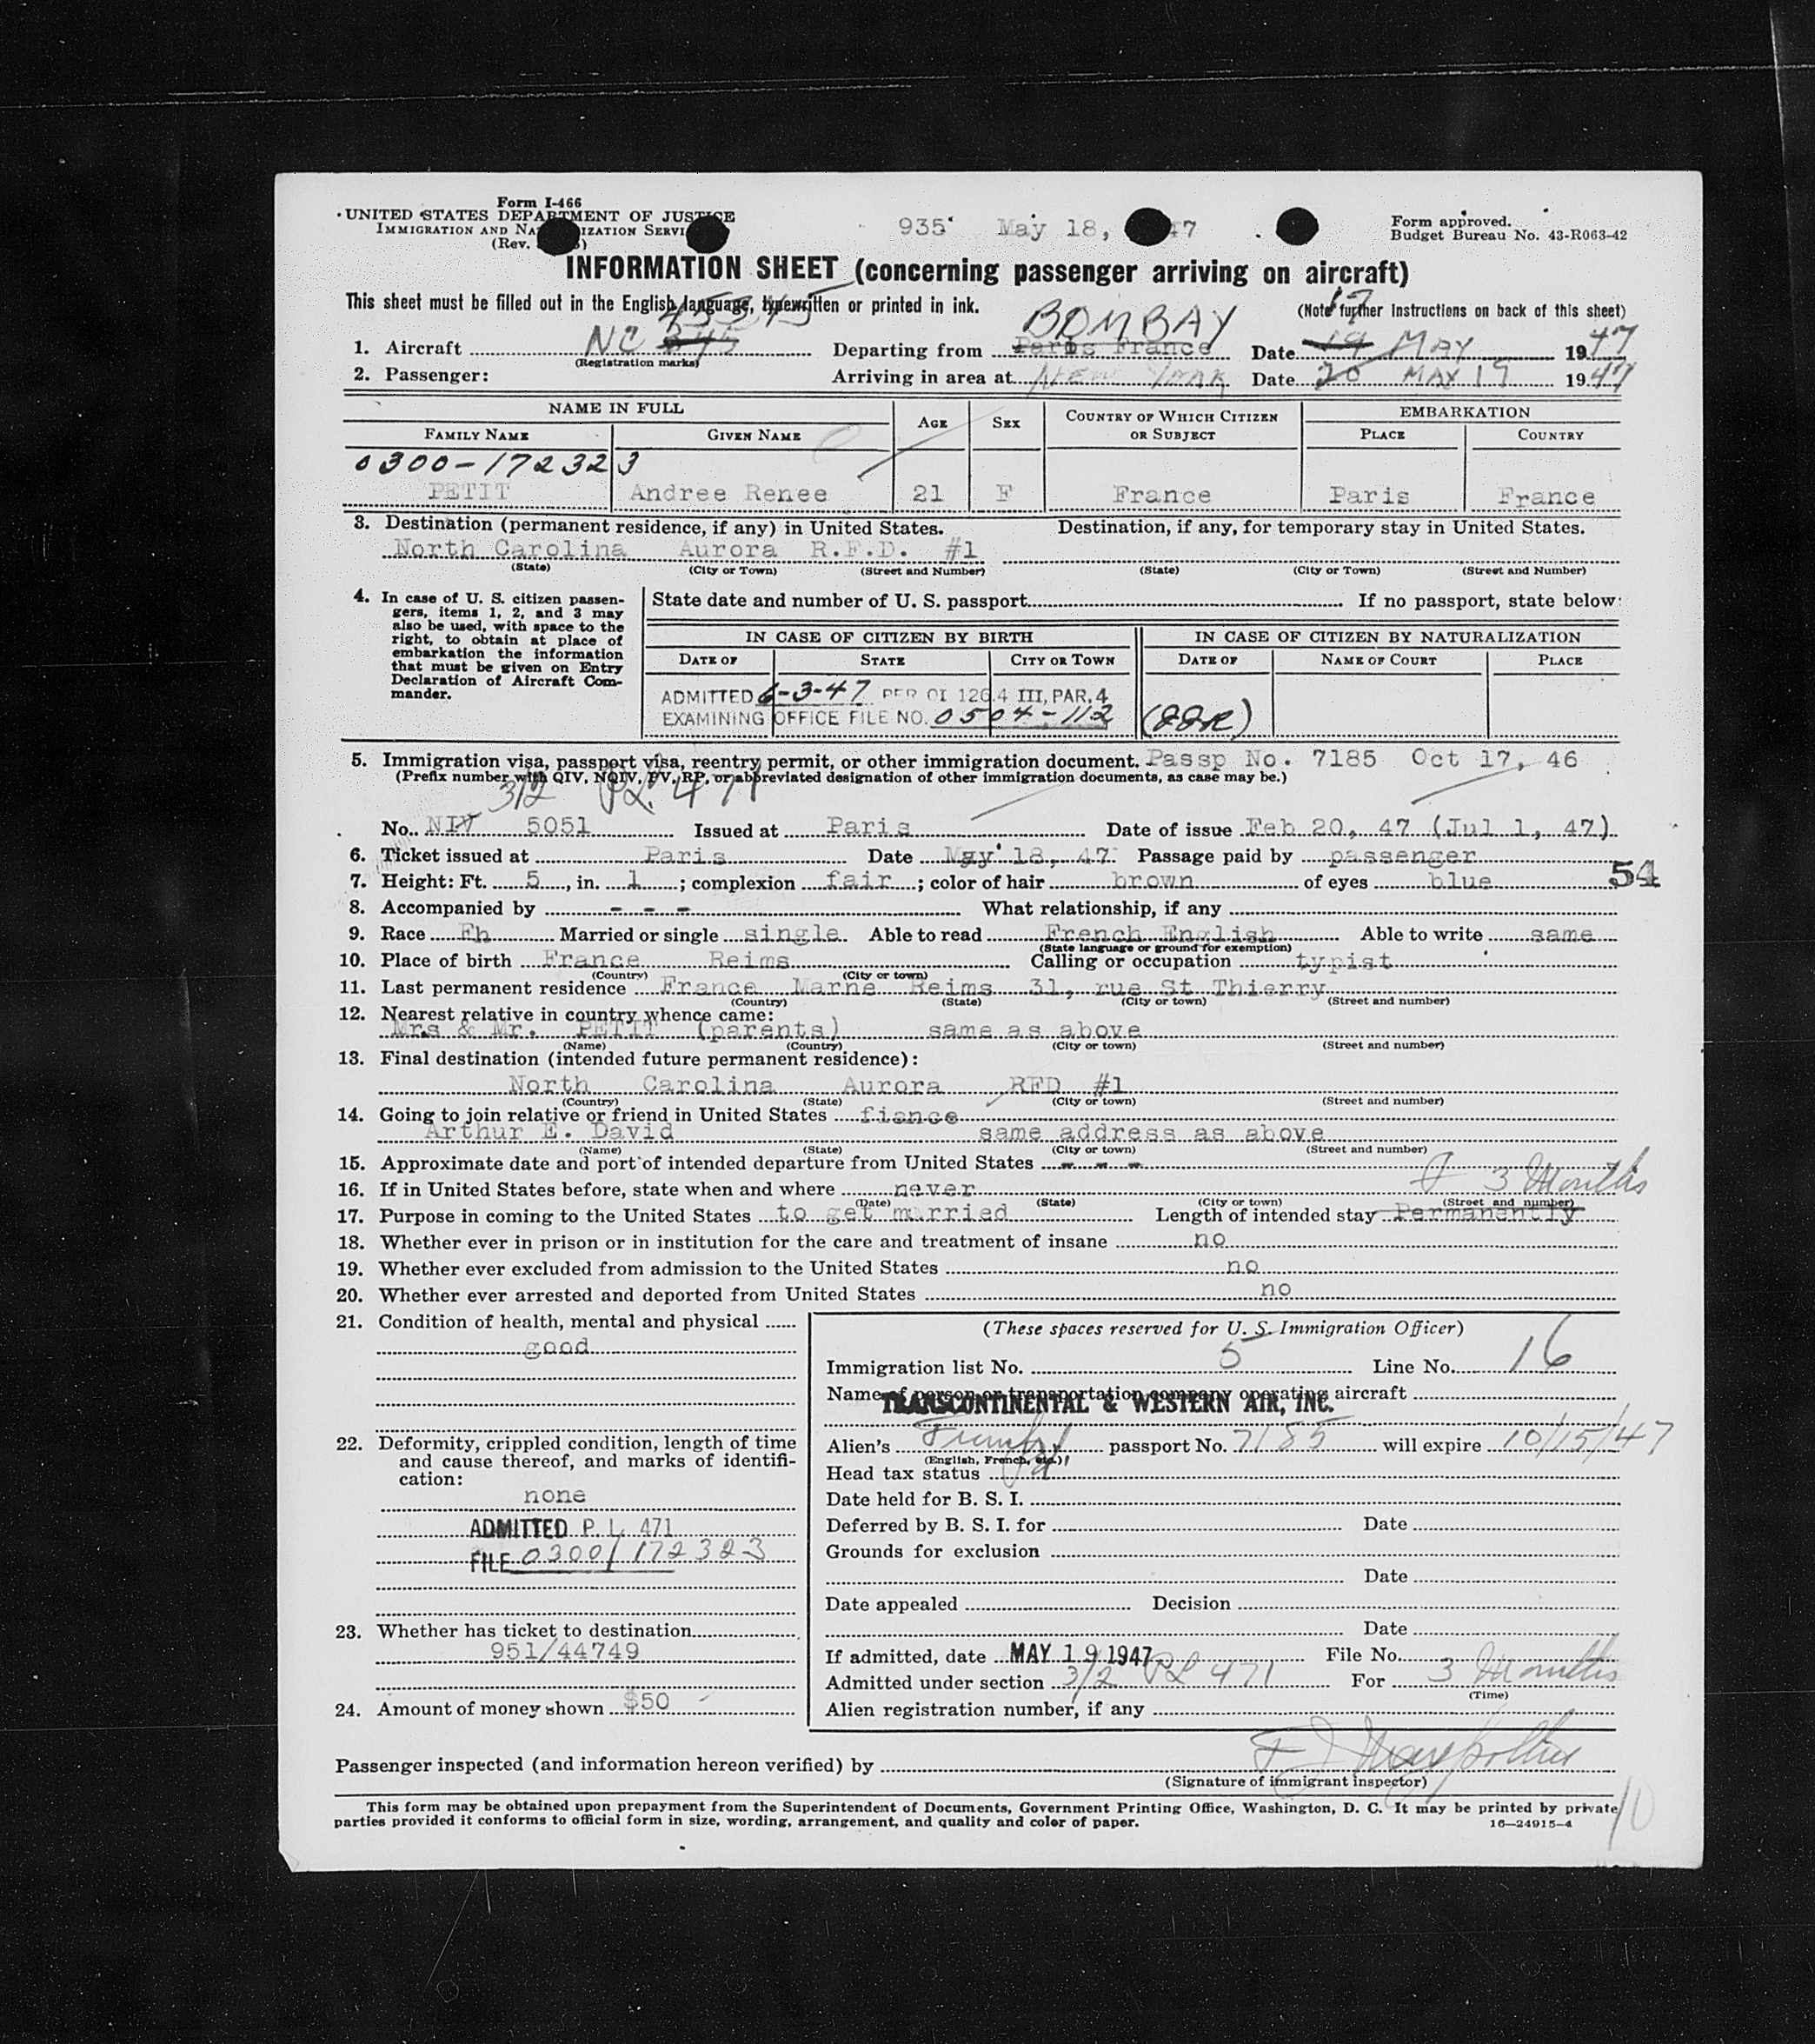 Form I-466
UNITED STATES DEPARTMENT OF JUSTICE
IMMIGRATION AND NATURALIZATION SERVICE
(Rev. )
935 May 18, 47
Form approved.
Budget Bureau No. 43-R063-42
INFORMATION SHEET (concerning passenger arriving on aircraft)
This sheet must be filled out in the English language, typewritten or printed in ink.
(Note further instructions on back of this sheet)
45345 BOMBAY 17
1. Aircraft NC 345 Departing from Paris France Date 19 MAY 1947
(Registration marks)
2. Passenger: Arriving in area at NEW YORK Date 20 MAY 19 1947
NAME IN FULL AGE SEX COUNTRY OF WHICH CITIZEN OR SUBJECT EMBARKATION
FAMILY NAME GIVEN NAME PLACE COUNTRY
0300-172323
PETIT Andree Renee 21 F France Paris France
3. Destination (permanent residence, if any) in United States. Destination, if any, for temporary stay in United States.
North Carolina Aurora R.F.D. #1
(State) (City or Town) (Street and Number) (State) (City or Town) (Street and Number)
4. In case of U. S. citizen passengers, items 1, 2, and 3 may also be used, with space to the right, to obtain at place of embarkation the information that must be given on Entry Declaration of Aircraft Commander.
State date and number of U. S. passport If no passport, state below:
IN CASE OF CITIZEN BY BIRTH IN CASE OF CITIZEN BY NATURALIZATION
DATE OF STATE CITY OR TOWN DATE OF NAME OF COURT PLACE
ADMITTED 6-3-47 PER OI 126.4 III, PAR. 4
EXAMINING OFFICE FILE NO. 0504-112
5. Immigration visa, passport visa, reentry permit, or other immigration document. Passp No. 7185 Oct 17, 46
(Prefix number with QIV, NQIV, PV, RP, or abbreviated designation of other immigration documents, as case may be.)
3/2 P.L. 471
No. NIV 5051 Issued at Paris Date of issue Feb 20, 47 (Jul 1, 47)
6. Ticket issued at Paris Date May 18, 47 Passage paid by passenger
54
7. Height: Ft. 5, in. 1; complexion fair; color of hair brown of eyes blue
8. Accompanied by - - - What relationship, if any
9. Race Fh Married or single single Able to read French English Able to write same
(State language or ground for exemption)
10. Place of birth France Reims Calling or occupation typist
(Country) (City or town)
11. Last permanent residence France Marne Reims 31, rue St Thierry
(Country) (State) (City or town) (Street and number)
12. Nearest relative in country whence came:
Mrs & Mr. PETIT (parents) same as above
(Name) (Country) (City or town) (Street and number)
13. Final destination (intended future permanent residence):
North Carolina Aurora RFD #1
(Country) (State) (City or town) (Street and number)
14. Going to join relative or friend in United States fiance
Arthur E. David same address as above
(Name) (State) (City or town) (Street and number)
15. Approximate date and port of intended departure from United States - - -
3 Months
16. If in United States before, state when and where never
(Date) (State) (City or town) (Street and number)
17. Purpose in coming to the United States to get married Length of intended stay Permanently
18. Whether ever in prison or in institution for the care and treatment of insane no
19. Whether ever excluded from admission to the United States no
20. Whether ever arrested and deported from United States no
21. Condition of health, mental and physical
good
22. Deformity, crippled condition, length of time and cause thereof, and marks of identification:
none
ADMITTED P. L. 471
FILE 0300/172323
23. Whether has ticket to destination
951/44749
24. Amount of money shown $50
(These spaces reserved for U. S. Immigration Officer)
Immigration list No. 5 Line No. 16
Name of person or transportation company operating aircraft
TRANSCONTINENTAL & WESTERN AIR, INC.
Alien's French passport No. 7185 will expire 10/15/47
(English, French, etc.)
Head tax status
Date held for B. S. I.
Deferred by B. S. I. for Date
Grounds for exclusion
Date
Date appealed Decision
Date
If admitted, date MAY 19 1947 File No.
Admitted under section 3/2 PL 471 For 3 Months
(Time)
Alien registration number, if any
Passenger inspected (and information hereon verified) by
(Signature of immigrant inspector)
This form may be obtained upon prepayment from the Superintendent of Documents, Government Printing Office, Washington, D. C. It may be printed by private
parties provided it conforms to official form in size, wording, arrangement, and quality and color of paper.
16—24915-4
10